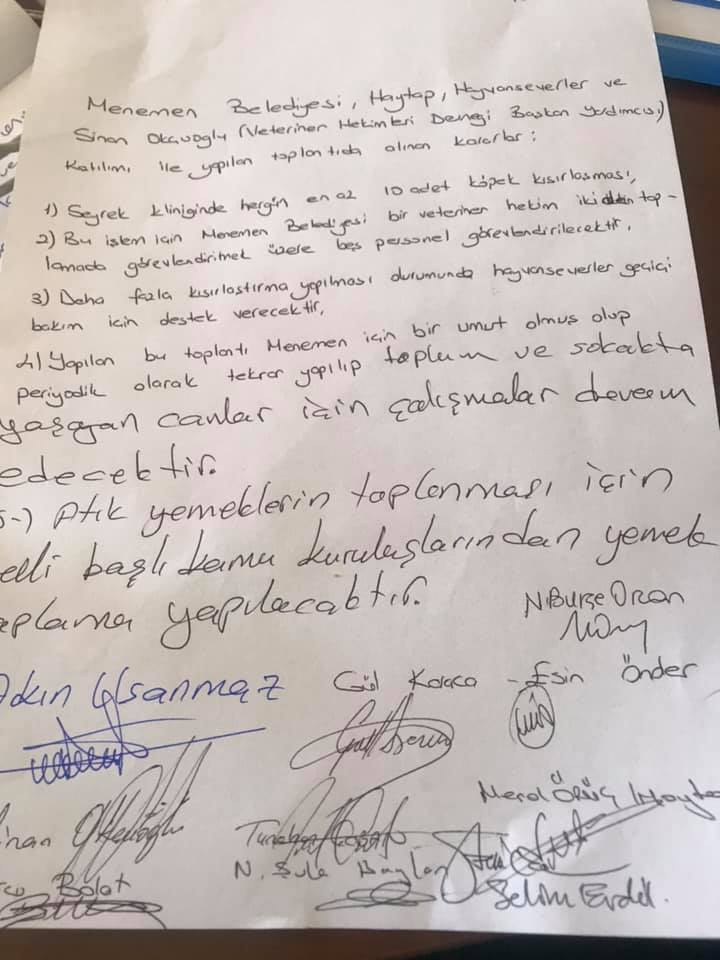 Menemen Belediyesi, Haytap, Hayvanseverler ve
Sinan Okçuoğlu (Veteriner Hekimleri Derneği Başkan Yardımcısı)
Katılımı ile yapılan toplantıda alınan kararlar:
1) Seyrek kliniğinde hergün en az 10 adet köpek kısırlaşması,
2) Bu işlem için Menemen Belediyesi bir veteriner hekim iki top-
lamada görevlendirilmek üzere beş personel görevlendirilecektir.
3) Daha fazla kısırlaştırma yapılması durumunda hayvanseverler geçici
bakım için destek verecektir.
4) Yapılan bu toplantı Menemen için bir umut olmuş olup
periyodik olarak tekrar yapılıp toplum ve sokakta
yaşayan canlar için çalışmalar devam
edecektir.
5-) Atık yemeklerin toplanması için
belli başlı kamu kuruluşlarından yemek
toplama yapılacaktır.
N. Buket Ozan
Gül Karaca - Esin Önder
Meral
N. Şule
Bolat
Selim